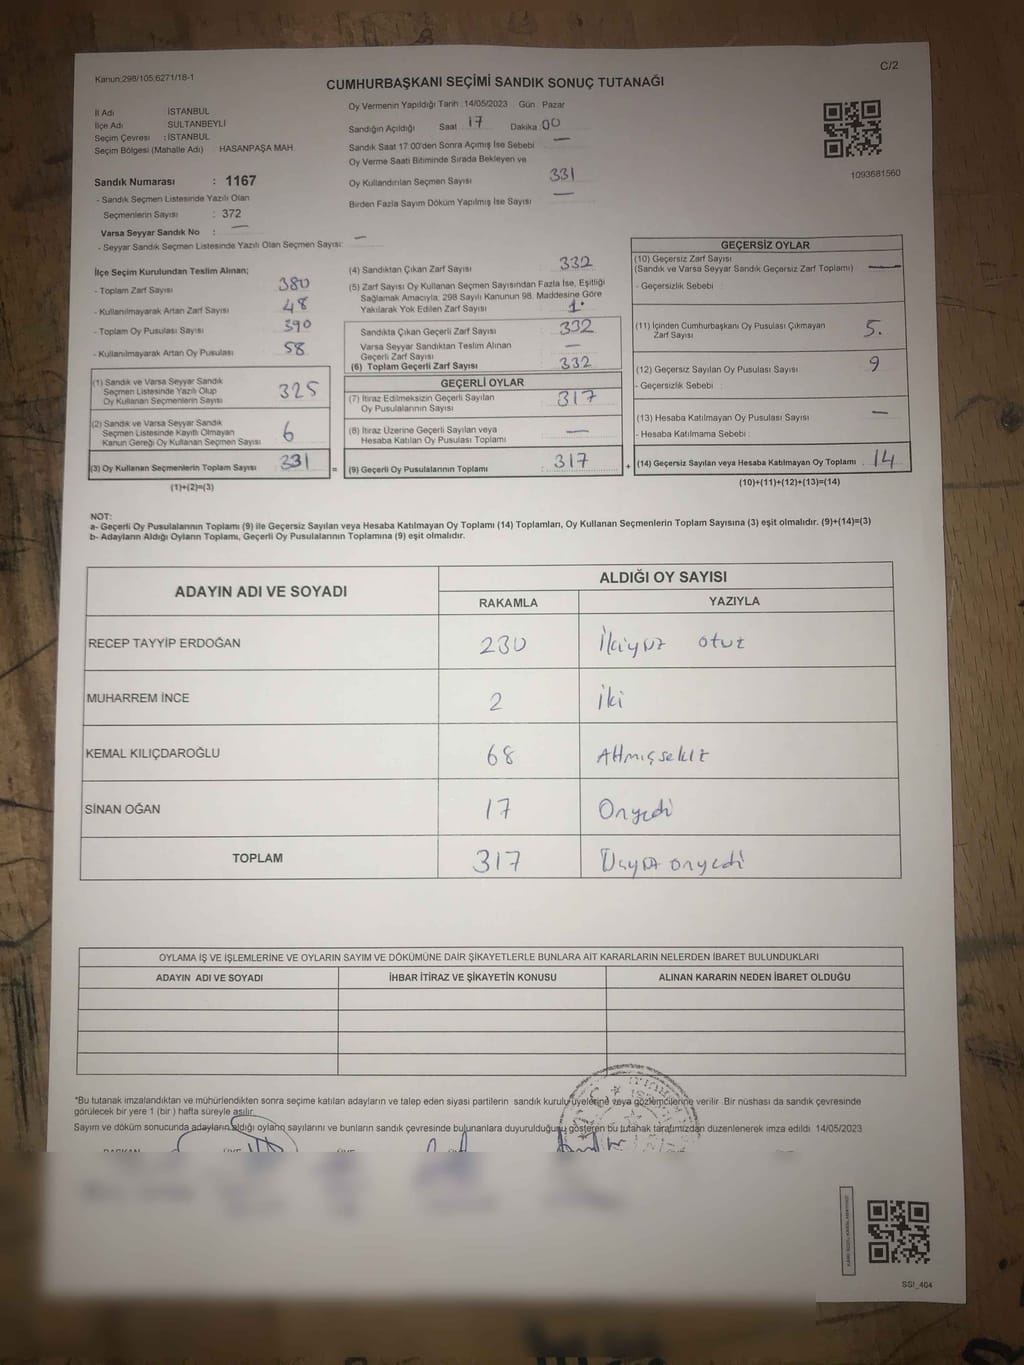 Kanun:298/105;6271/18-1
C/2
CUMHURBAŞKANI SEÇİMİ SANDIK SONUÇ TUTANAĞI
İl Adı İSTANBUL
İlçe Adı SULTANBEYLİ
Seçim Çevresi : İSTANBUL
Seçim Bölgesi (Mahalle Adı) HASANPAŞA MAH
Sandık Numarası : 1167
- Sandık Seçmen Listesinde Yazılı Olan
Seçmenlerin Sayısı : 372
Varsa Seyyar Sandık No : —
- Seyyar Sandık Seçmen Listesinde Yazılı Olan Seçmen Sayısı: —
Oy Vermenin Yapıldığı Tarih :14/05/2023 Gün Pazar
Sandığın Açıldığı Saat 17 Dakika 00
Sandık Saat 17 00'den Sonra Açımış İse Sebebi —
Oy Verme Saati Bitiminde Sırada Bekleyen ve
Oy Kullandırılan Seçmen Sayısı 331
Birden Fazla Sayım Döküm Yapılmış İse Sayısı —
1093681560
İlçe Seçim Kurulundan Teslim Alınan;
- Toplam Zarf Sayısı 380
- Kullanılmayarak Artan Zarf Sayısı 48
- Toplam Oy Pusulası Sayısı 390
- Kullanılmayarak Artan Oy Pusulası 58
(1) Sandık ve Varsa Seyyar Sandık
Seçmen Listesinde Yazılı Olup
Oy Kullanan Seçmenlerin Sayısı 325
(2) Sandık ve Varsa Seyyar Sandık
Seçmen Listesinde Kayıtlı Olmayan
Kanun Gereği Oy Kullanan Seçmen Sayısı 6
(3) Oy Kullanan Seçmenlerin Toplam Sayısı 331
(1)+(2)=(3)
(4) Sandıktan Çıkan Zarf Sayısı 332
(5) Zarf Sayısı Oy Kullanan Seçmen Sayısından Fazla İse, Eşitliği
Sağlamak Amacıyla, 298 Sayılı Kanunun 98. Maddesine Göre
Yakılarak Yok Edilen Zarf Sayısı 1.
Sandıkta Çıkan Geçerli Zarf Sayısı 332
Varsa Seyyar Sandıktan Teslim Alınan
Geçerli Zarf Sayısı —
(6) Toplam Geçerli Zarf Sayısı 332
GEÇERLİ OYLAR
(7) İtiraz Edilmeksizin Geçerli Sayılan
Oy Pusulalarının Sayısı 317
(8) İtiraz Üzerine Geçerli Sayılan veya
Hesaba Katılan Oy Pusulası Toplamı —
= (9) Geçerli Oy Pusulalarının Toplamı : 317
GEÇERSİZ OYLAR
(10) Geçersiz Zarf Sayısı
(Sandık ve Varsa Seyyar Sandık Geçersiz Zarf Toplamı) —
- Geçersizlik Sebebi :
(11) İçinden Cumhurbaşkanı Oy Pusulası Çıkmayan
Zarf Sayısı 5.
(12) Geçersiz Sayılan Oy Pusulası Sayısı 9
- Geçersizlik Sebebi :
(13) Hesaba Katılmayan Oy Pusulası Sayısı —
- Hesaba Katılmama Sebebi :
+ (14) Geçersiz Sayılan veya Hesaba Katılmayan Oy Toplamı . 14
(10)+(11)+(12)+(13)=(14)
NOT:
a- Geçerli Oy Pusulalarının Toplamı (9) ile Geçersiz Sayılan veya Hesaba Katılmayan Oy Toplamı (14) Toplamları, Oy Kullanan Seçmenlerin Toplam Sayısına (3) eşit olmalıdır. (9)+(14)=(3)
b- Adayların Aldığı Oyların Toplamı, Geçerli Oy Pusulalarının Toplamına (9) eşit olmalıdır.
ADAYIN ADI VE SOYADI ALDIĞI OY SAYISI
RAKAMLA YAZIYLA
RECEP TAYYİP ERDOĞAN 230 İkiyüz otuz
MUHARREM İNCE 2 İki
KEMAL KILIÇDAROĞLU 68 Altmışsekiz
SİNAN OĞAN 17 Onyedi
TOPLAM 317 Üçyüz onyedi
OYLAMA İŞ VE İŞLEMLERİNE VE OYLARIN SAYIM VE DÖKÜMÜNE DAİR ŞİKAYETLERLE BUNLARA AİT KARARLARIN NELERDEN İBARET BULUNDUKLARI
ADAYIN ADI VE SOYADI İHBAR İTİRAZ VE ŞİKAYETİN KONUSU ALINAN KARARIN NEDEN İBARET OLDUĞU
*Bu tutanak imzalandıktan ve mühürlendikten sonra seçime katılan adayların ve talep eden siyasi partilerin sandık kurulu üyelerine veya gözlemcilerine verilir. Bir nüshası da sandık çevresinde
görülecek bir yere 1 (bir ) hafta süreyle asılır.
Sayım ve döküm sonucunda adayların aldığı oyların sayılarını ve bunların sandık çevresinde bulunanlara duyurulduğunu gösteren bu tutanak tarafımızdan düzenlenerek imza edildi 14/05/2023
SSI_404